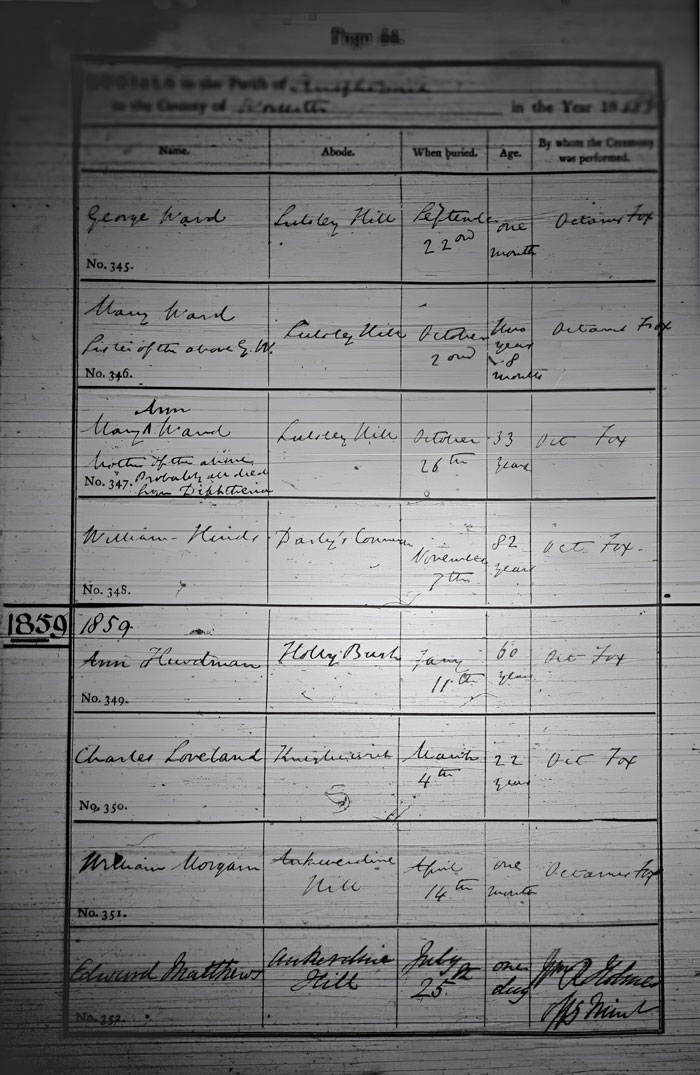 Page 44.
BURIALS in the Parish of
in the County of Worcester in the Year 185
Name. Abode. When buried. Age. By whom the Ceremony was performed.
George Ward Lulsley Hill September 22nd one month Octavius Fox
No. 345.
Mary Ward Lulsley Hill October 2nd Two years 8 months Octavius Fox
Sister of the above G. W.
No. 346.
Mary Ann Ward Lulsley Hill October 26th 33 years Oct Fox
Mother of the above
No. 347. Probably all died
from Diphtheria
William Hinds Darby's Common November 7th 82 years Oct. Fox.
No. 348.
1859 1859
Ann Hurdman Holly Bush Jany 11th 60 years Oct Fox
No. 349.
Charles Loveland Knightwick March 4th 22 years Oct Fox
No. 350.
William Morgan Ankuerdine Hill April 14th one month Octavius Fox
No. 351.
Edward Matthews Ankerdine Hill July 25th one day Holmes
No. 352.